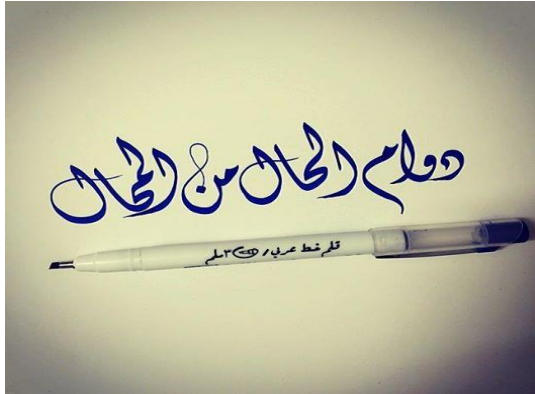 دوام الحال من المحال
قلم خط عربي / ٣ ملم